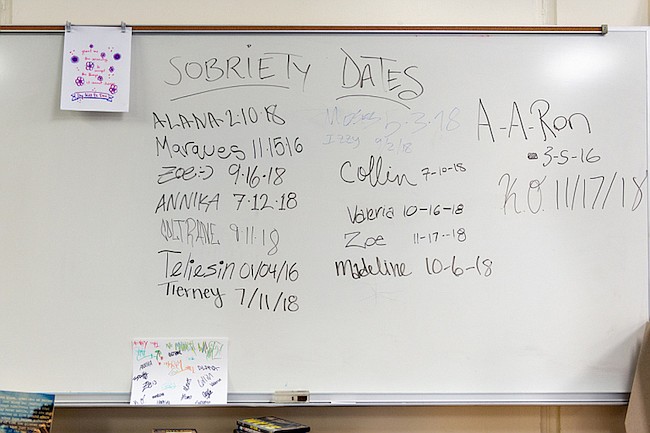 SOBRIETY DATES
ALANA-2·10·18
Marques 11·15·16
Zoe:-) 9·16·18
ANNIKA 7·12·18
COLTRANE 9·11·18
Teliesin 01/04/16
Tierney 7/11/18
5-3-18
Izzy 9/2/18
Collin 7-10-18
Valeria 10-16-18
Zoe 11-17-18
Madeline 10-6-18
A-A-Ron
3-5-16
K.O. 11/17/18